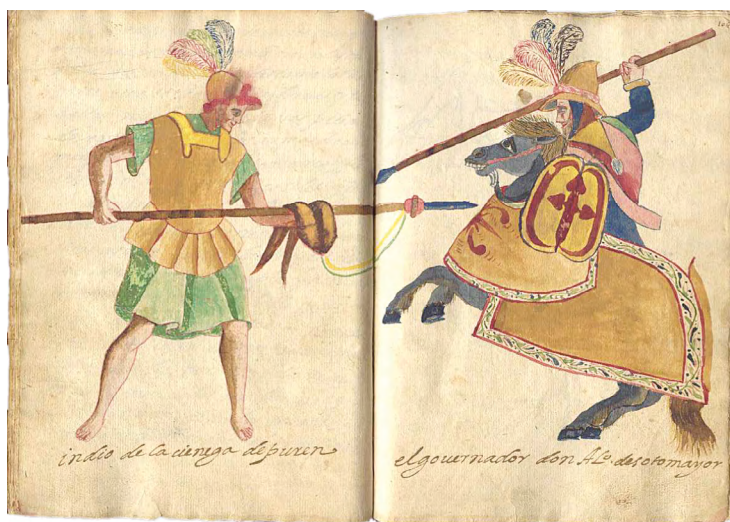 indio de la cienega de puren
el governador don Alº. de sotomayor